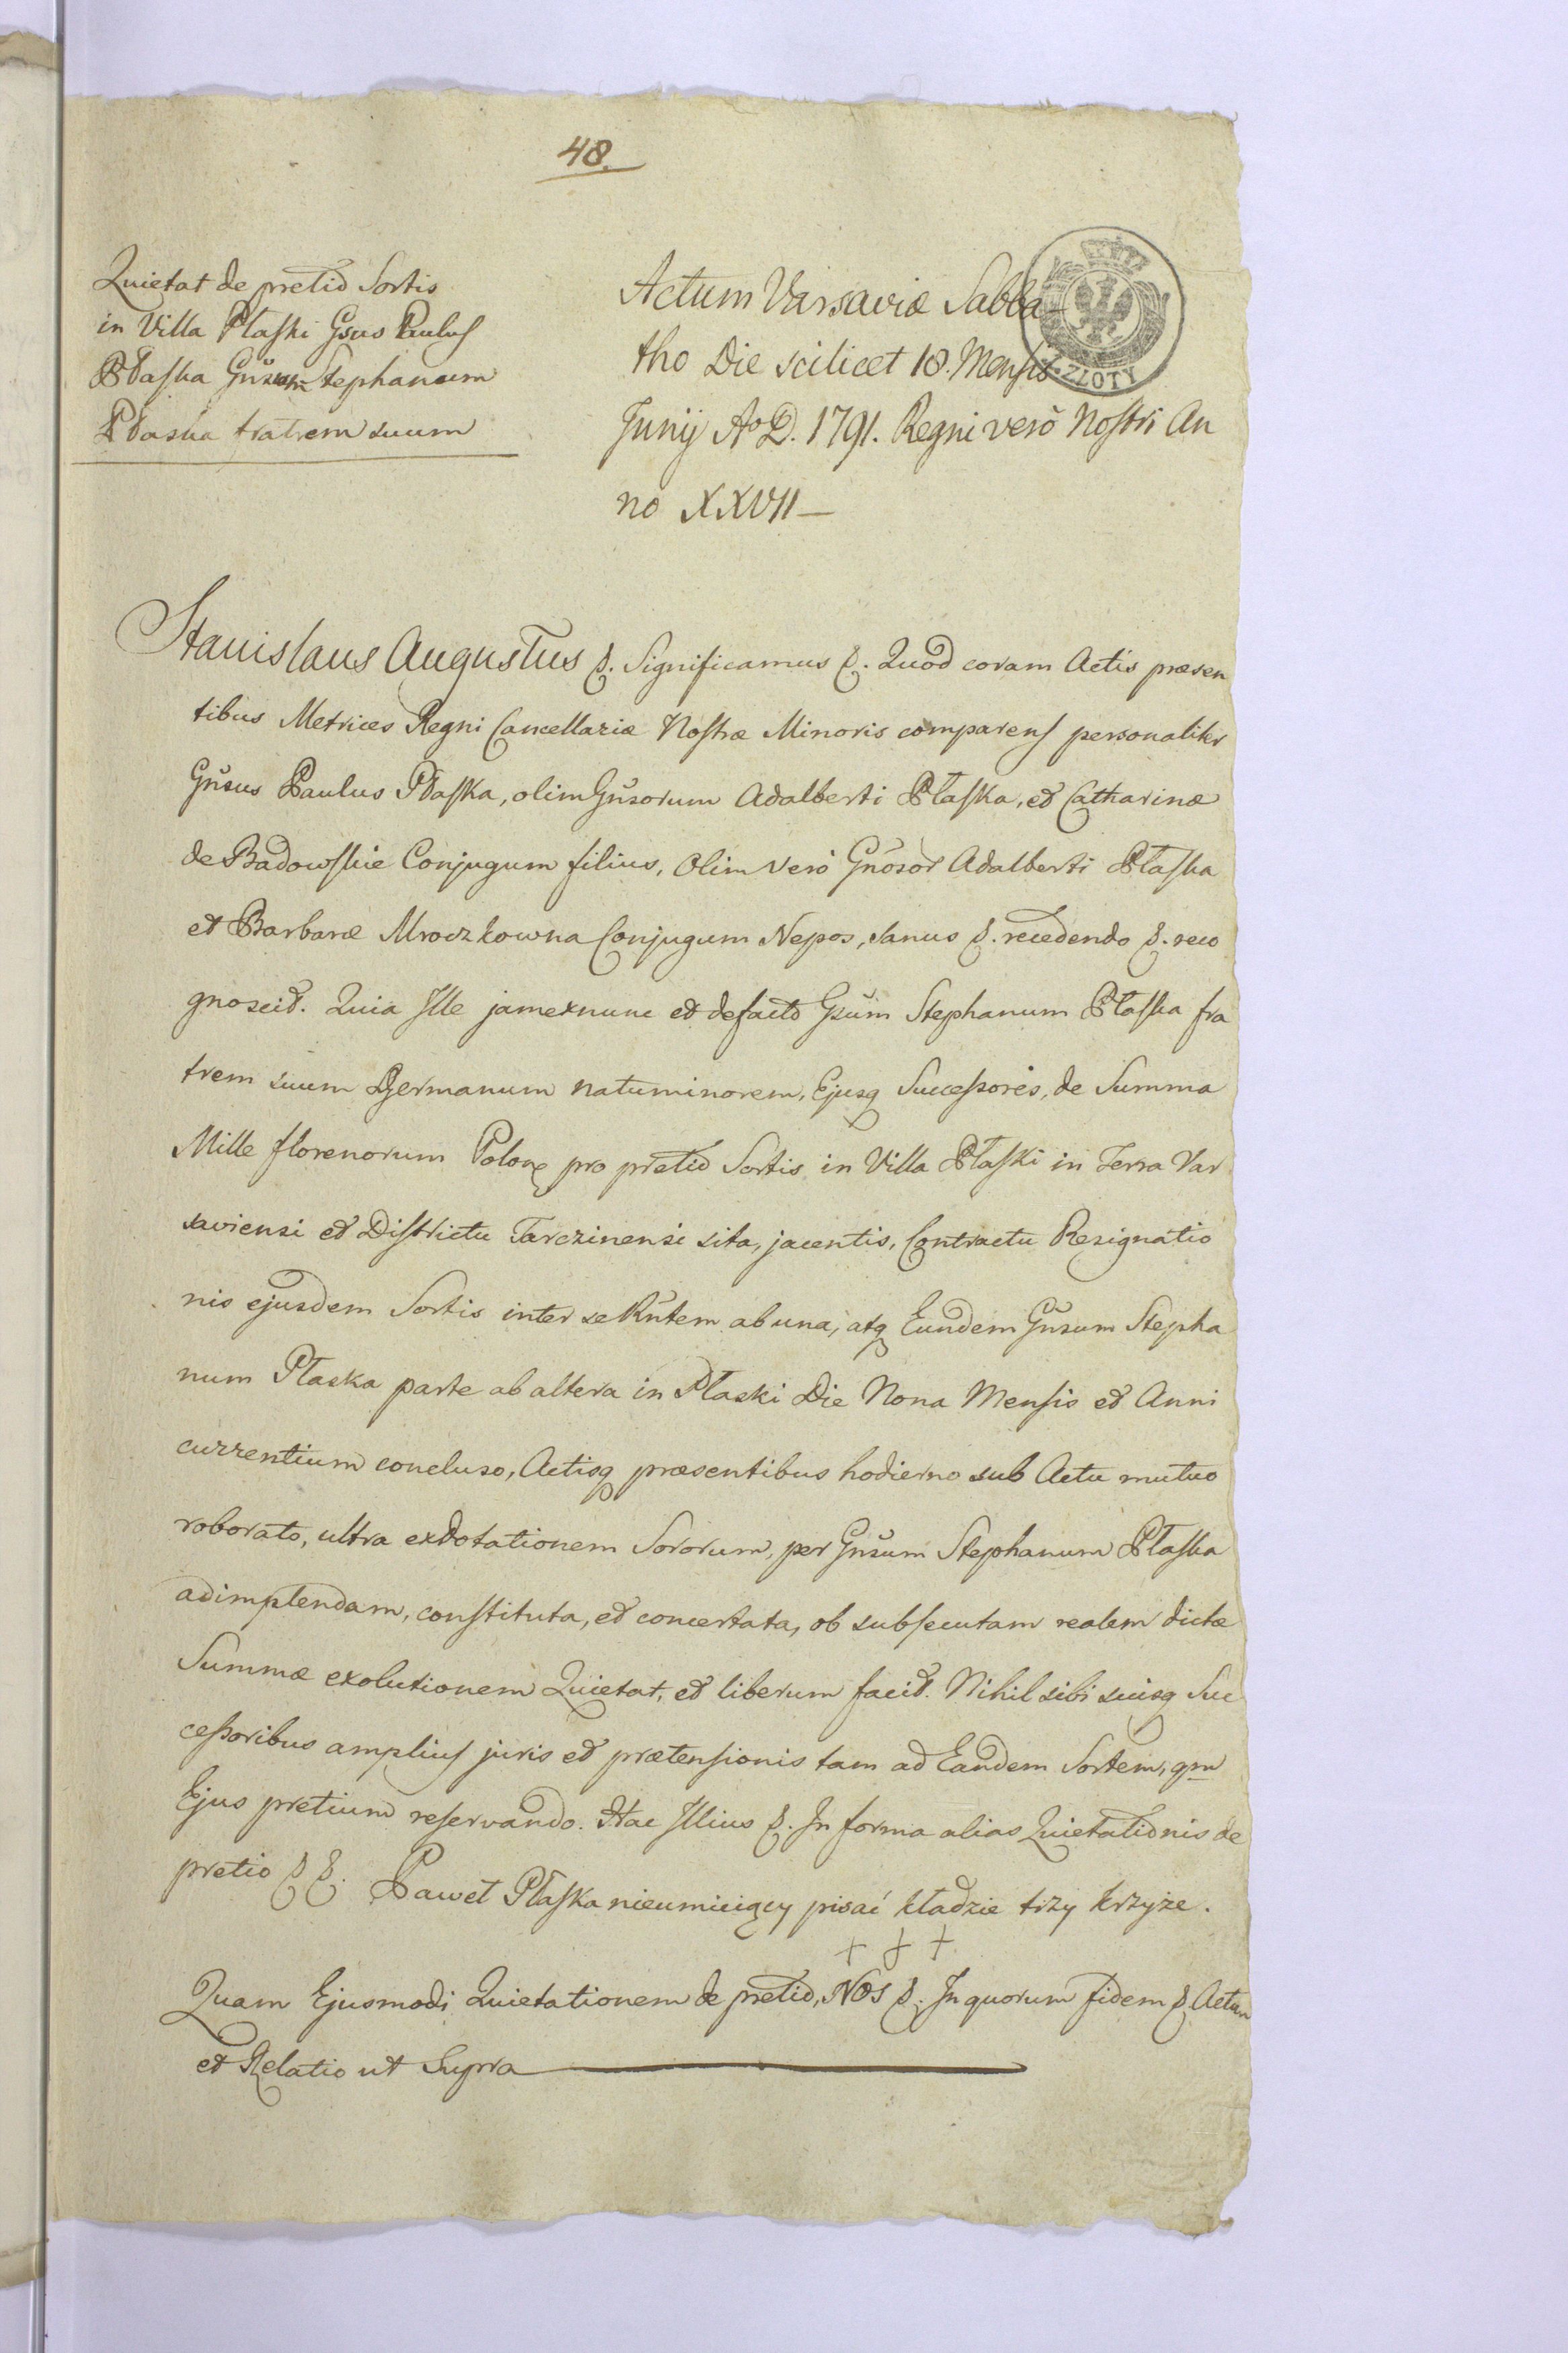 48.
Quietat de pretio Sortis
in Villa Płaski Gsus Paulus
Płaska Gnsum Stephanum
Płaska fratrem suum
Actum Varsaviæ Sabba-
tho Die scilicet 18. Mensis
Junij Ao D. 1791. Regni verò Nostri An
no XXVII —
1 ZŁOTY
Stanislaus Augustus &. Significamus &. Quod coram Actis præsen
tibus Metrices Regni Cancellariæ Nostræ Minoris comparens personaliter
Gnsus Paulus Płaska, olim Gnsorum Adalberti Płaska, et Catharinæ
de Badowskie Conjugum filius, Olim verò Gnosor Adalberti Płaska
et Barbaræ Mroczkowna Conjugum Nepos, sanus &. recedendo &. reco
gnoscit. Quia Ille jamexnunc et defacto Gsum Stephanum Płaska fra
trem suum Germanum natuminorem, Ejusq Successores, de Summa
Mille florenorum Polon pro pretio Sortis in Villa Płaski in Terra Var
saviensi et Districtu Tarczinensi sita, jacentis, Contractu Resignatio
nis ejusdem Sortis inter se Rntem ab una, atq Eundem Gnsum Stepha
num Płaska parte ab altera in Płaski Die Nona Mensis et Anni
currentium concluso, Actisq præsentibus hodierno sub Actu mutuo
roborato, ultra exdotationem Sororum, per Gnsum Stephanum Płaska
adimplendam, constituta, et concertata, ob subsecutam realem dictæ
Summæ exolutionem Quietat, et liberum facit. Nihil sibi suisq Suc
cessoribus amplius juris et prætensionis tam ad Eandem Sortem, qm
Ejus pretium reservando. Hac Illius &. In forma alias Quietationis de
pretio & &. Paweł Płaska nieumieiący pisać kładzie trzy krzyże.
+ + +
Quam Ejusmodi Quietationem de pretio, Nos &. In quorum fidem &. Actum
et Relatio ut Supra